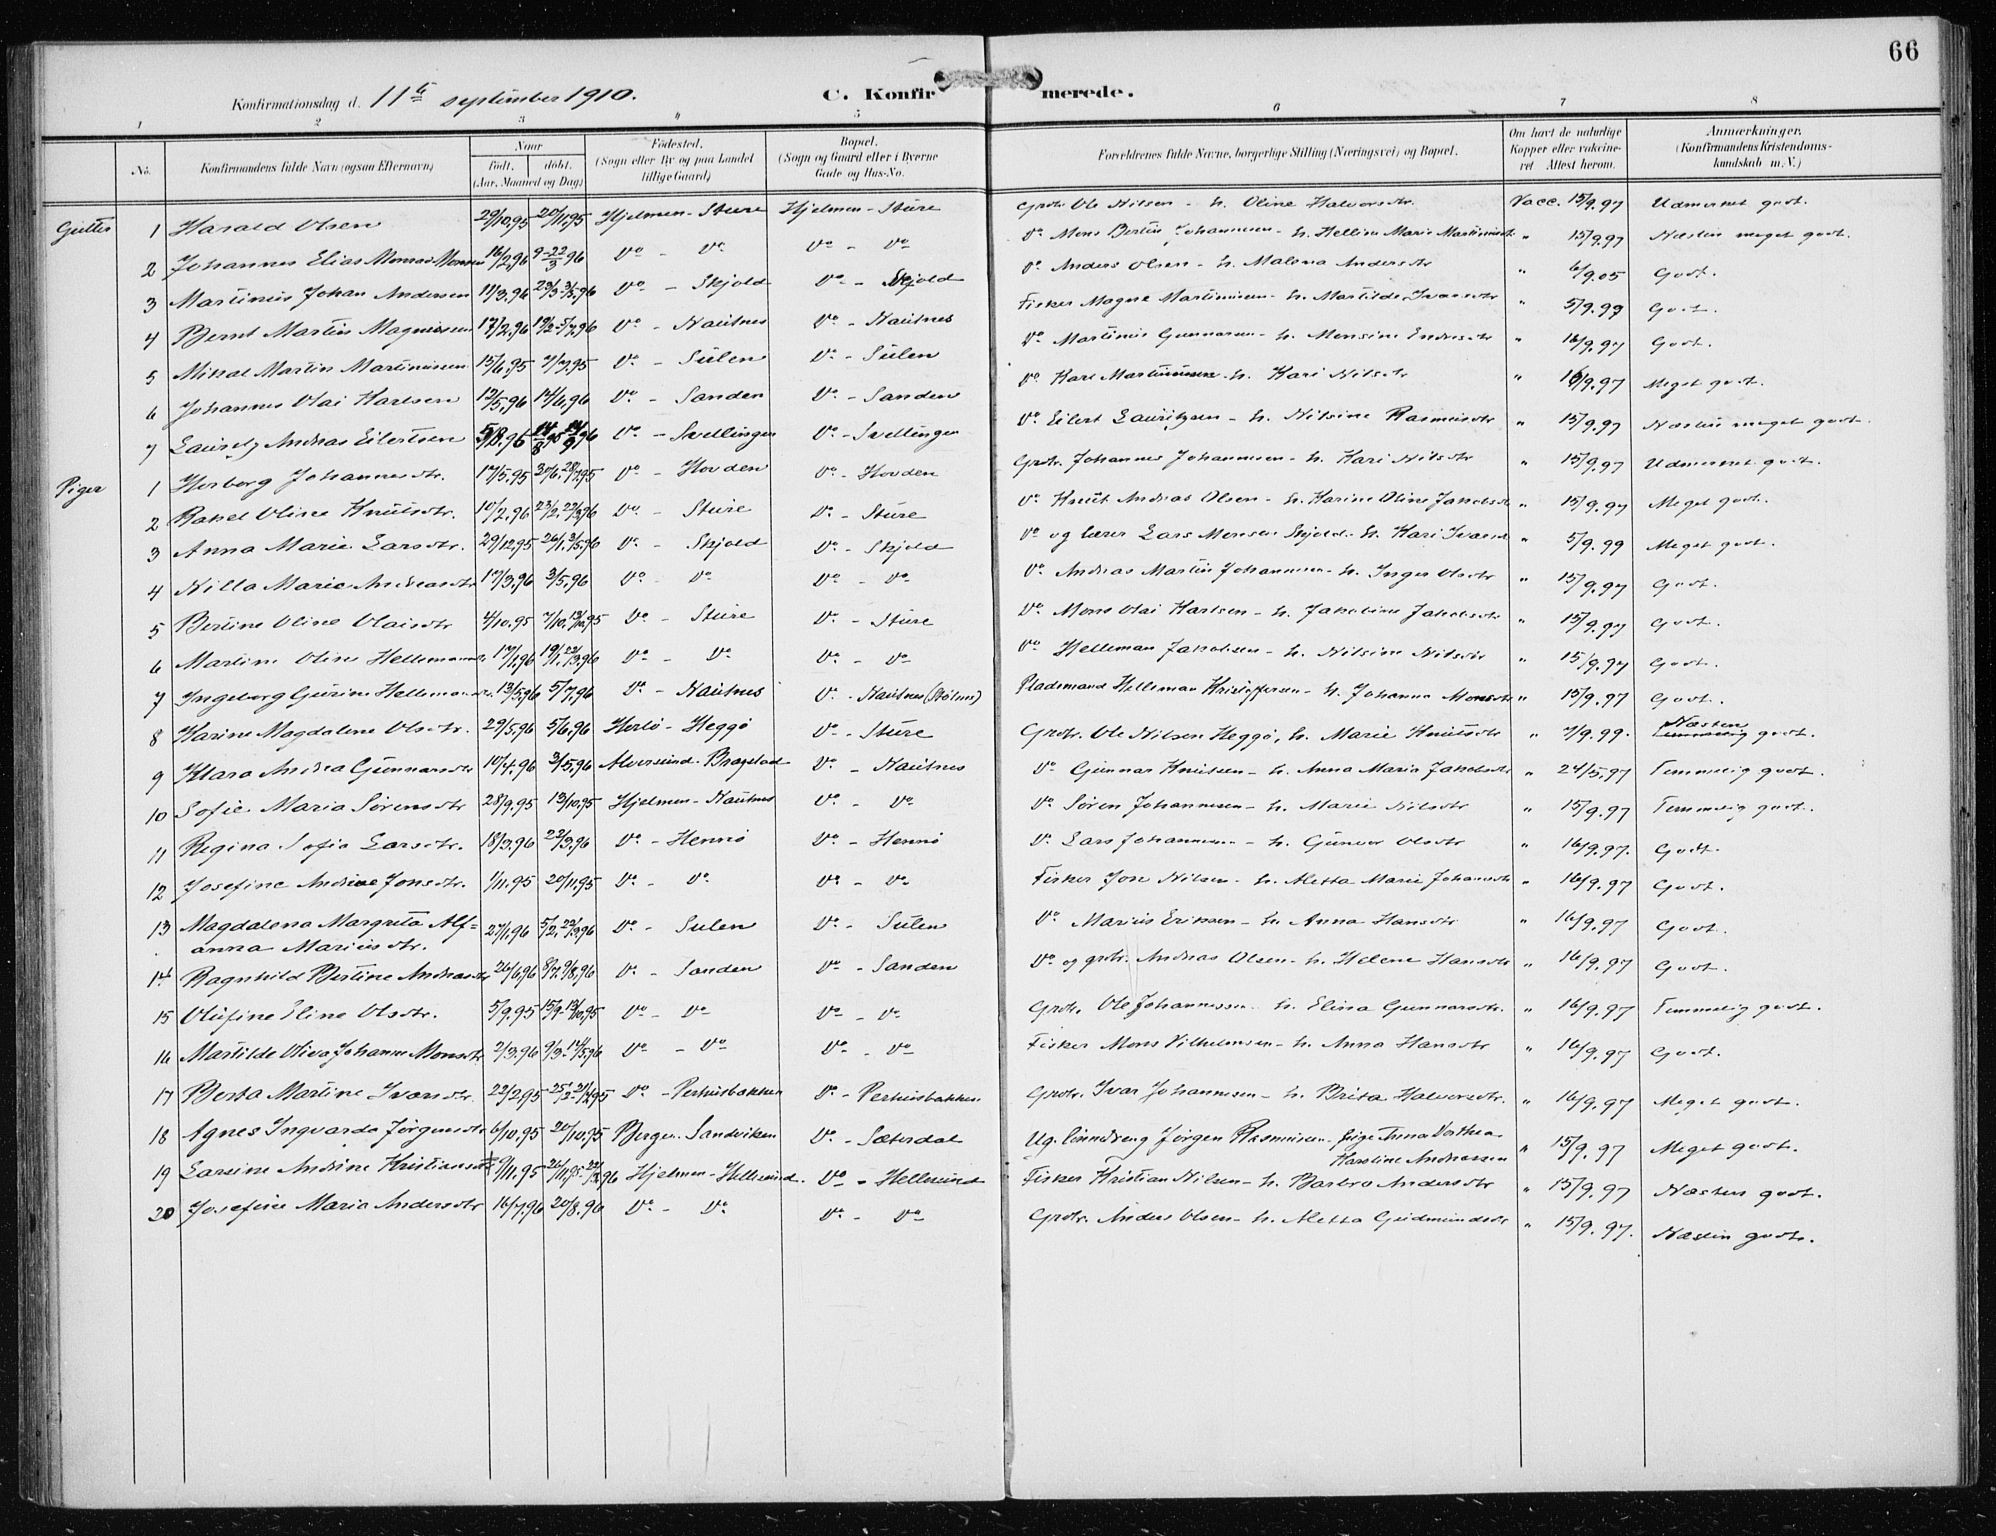 66
Konfirmationsdag d. 11te september 1910.
C. Konfirmerede.
1 2 3 4 5 6 7 8
No. Konfirmandens fulde Navn (ogsaa Efternavn)
Naar
født. døbt.
(Aar, Maaned og Dag)
Fødested.
(Sogn eller By og paa Landet
tillige Gaard)
Bopæl.
(Sogn og Gaard eller i Byerne
Gade og Hus-No.
Forældrenes fulde Navne, borgerlige Stilling (Næringsvei) og Bopæl.
Om havt de naturlige
Kopper eller vakcine-
ret Attest herom.
Anmærkninger.
(Konfirmandens Kristendoms-
kundskab m. V.)
Gutter 1 Harald Olsen 29/10.95 20/11.95 Hjelmen - Sture Hjelmen - Sture Grdbr. Ole Nilsen - h. Oline Halvorsdtr. Vacc. 15/9.97 Udmerket godt.
2 Johannes Elias Monsen 16/2.96 Do - Do Do - Do Do Mons Bertin Johannesen - h. Helline Marie Martinusdtr " 15/9.97 Næsten meget godt.
3 Martinus Johan Andersen 11/3.96 Do - Skjold Do - Skjold Do Anders Olsen - h. Malena Andersdtr " 6/9.05 Godt.
4 Bernt Martin Magnussen 17/2.96 Do - Nautnes Do - Nautnes Fisker Magne Martinusen - h. Martilde Ivarsdtr " 5/9.99 Godt.
5 Mikal Martin Martinussen 15/6.95 7/7.95 Do - Sulen Do - Sulen Do Martinus Gunnarsen - h. Monsine Endresdtr " 16/9.97 Godt.
6 Johannes Olai Karlsen 12/5.96 14/6.96 Do - Sanden Do - Sanden Do Karl Martinussen - h. Kari Nilsdtr " 16/9.97 Meget godt.
7 Lauritz Andreas Eilertsen Do - Svellingen Do - Svellingen Do Eilert Lauritzsen - h. Nilsine Rasmusdtr " 15/9.97 Næsten meget godt.
Piger 1 Herborg Johannesdtr. 17/5.95 Do - Hovden Do - Hovden Grdbr. Johannes Johannesen - h. Kari Nilsdtr " 15/9.97 Udmerket godt.
2 Rakel Oline Knutsdtr. 10/2.96 Do - Sture Do - Sture Do Knut Andreas Olsen - h. Karine Oline Jakobsdtr " 15/9.97 Meget godt.
3 Anna Marie Larsdtr. 29/12.95 Do - Skjold Do - Skjold Do og lærer Lars Monsen Skjold - h. Kari Ivarsdtr " 5/9.99 Meget godt.
4 Nilla Marie Andreasdtr 17/3.96 3/5.96 Do - Do Do - Do Do Andreas Martin Johannesen - h. Inger Olsdtr " 15/9.97 Godt.
5 Bertine Oline Olaisdtr 4/10.95 Do - Sture Do - Sture Do Mons Olai Karlsen - h. Jakobine Jakobsdtr " 15/9.97 Godt.
6 Martine Oline Hellemansdtr. 17/1.96 Do - Do Do - Do Do Helleman Jakobsen - h. Nilsine Nilsdtr " 15/9.97 Godt.
7 Ingeborg Gurine Hellemansdtr. 13/5.96 5/7.96 Do - Nautnes Do - Nautnes Pladsmand Helleman Kristoffersen - h. Johanna Monsdtr " 15/9.97 Godt.
8 Karine Magdalene Olsdtr. 29/5.96 5/6.96 Herlø - Heggø Do - Sture Grdbr. Ole Nilsen Heggø, h. Marie Knutsdtr " 7/9.99. Næsten godt.
9 Klara Andrea Gunnarsdtr 10/4.96 3/5.96 Alversund - Bragstad Do - Nautnes Do Gunnar Knutsen - h. Anna Maria Jakobsdtr " 24/5.97 Temmelig godt.
10 Sofie Maria Sørensdtr 28/9.95 13/10.95 Hjelmen - Nautnes Do - Do Do Søren Johannesen - h. Marie Nilsdtr " 15/9.97 Temmelig godt.
11 Regina Sofia Larsdtr. 18/3.96 22/3.96 Do - Hennø Do - Hennø Do Lars Johannesen - h. Gunvor Olsdtr " 16/9.97. Godt.
12 Josefine Andrea Jonsdtr. 1/11.95 20/11.95 Do - Do Do - Do Fisker Jon Nilsen - h. Aletta Marie Johansdtr " 16/9.97 Godt.
13 Magdalena Margreta Alf=
anna Mariusdtr. 27/1.96 Do - Sulen Do - Sulen Do Marius Eriksen - h. Anna Hansdtr " 16/9.97 Godt.
14 Ragnhild Bertine Andreasdtr 26/6.96 Do - Sanden Do - Sanden Do og grdbr. Andreas Olsen - h. Helene Hansdtr " 16/9.97 Godt.
15 Olufine Eline Olsdtr. 5/9.95 Do - Do Do - Do Grdbr. Ole Johannessen - h. Elina Gunnarsdtr. " 16/9.97 Temmelig godt.
16 Martilde Oliva Johanne Monsdtr 2/3.96 Do - Do Do - Do Fisker Mons Vilhelmsen - h. Anna Hansdtr " 16/9.97 Godt.
17 Berta Martine Ivarsdtr. 22/2.95 Do - Perhusbakken Do - Perhusbakken Grdbr. Ivar Johannesen - h. Brita Halvorsdtr. " 16/9.97 Meget godt.
18 Agnes Ingvarda Jørgensdtr 6/10.95 20/10.95 Bergen - Sandviken Do - Sæterdal Ug. Jørgen Rasmusen - Pige Anna Dorthea
Karoline Andreassen " 15/9.97 Meget godt.
19 Larsine Andrine Kristiansdtr 9/11.95 Hjelmen - Hellesund. Do - Hellesund Fisker Kristian Nilsen - h. Barbro Andersdtr " 15/9.97 Næsten godt.
20 Josefine Maria Andersdtr 16/7.96 20/8.96 Do - Do Do - Do Grdbr. Anders Olsen - h. Aletta Gudmundsdtr " 15/9.97. Næsten godt.